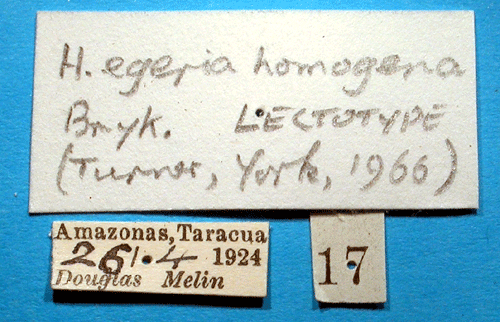 H. egeria homogena
Bryk. LECTOTYPE
(Turner, York, 1966)
Amazonas, Taracua
26/.4 1924
Douglas Melin
17